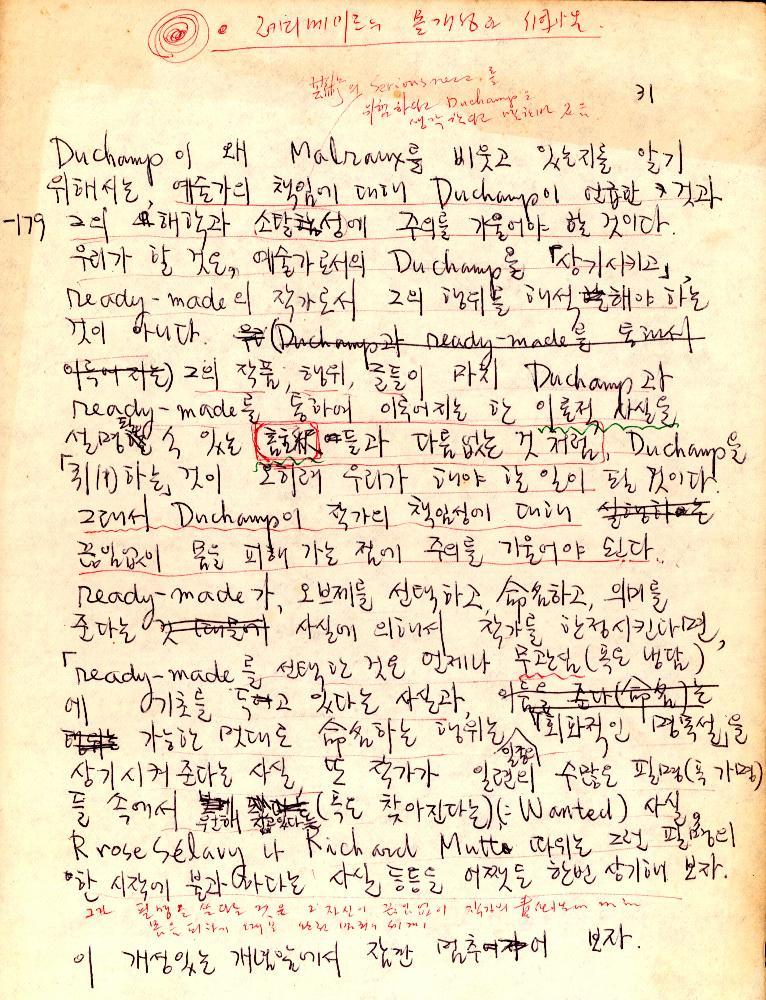 레디메이드의 몰개성과
의 Seriousness를
위험하다고 Duchamp은
생각한다고 말하면 모음
31
Duchamp이 왜 Malraux를 비웃고 있는지를 알기
위해서는, 예술가의 책임에 대해 Duchamp이 언급한 것과
-179 그의 해학과 소탈성에 주의를 기울어야 할 것이다.
우리가 할 것은, 예술가로서의 Duchamp을 「상기시키고」,
ready-made의 작가로서 그의 행위를 해석해야 하는
것이 아니다. (Duchamp과 ready-made를 통해서
이룩어지는) 그의 작품, 행위, 글들이 마치 Duchamp과
ready-made를 통하여 이룩어지는 한 이론적 사실을
설명할 수 있는 註釈들과 다름없는 것처럼, Duchamp을
「취(取)하는」 것이 오히려 우리가 해야 할 일이 될 것이다.
그래서 Duchamp이 작가의 책임성에 대해
끊임없이 몸을 피해 가는 점에 주의를 기울어야 된다.
ready-made가, 오브제를 선택하고, 命名하고, 의미를
준다는 것 사실에 의해서 작가를 한정시킨다면,
「ready-made를 선택한 것은 언제나 무관심(혹은 냉담)
에 기초를 두고 있다는 사실과, 이름을 준다(命名)는
가능한 멋대로 命名하는 행위는 회화적인 명목설」을
상기시켜 준다는 사실 또 작가가 일련의 수많은 필명(혹 가명)
들 속에서 우연히 (혹은 찾아진다는)(:Wanted) 사실,
Rrose Sélavy나 Richard Mutt 따위는 그런 필명의
한 시작에 불과하다는 사실 등등을 어쨋든 한번 상기해 보자.
그가 필명을 쓴다는 것은 그 자신이 끊임없이 작가의
몸을 피하기
이 개성있는 개념앞에서 잠깐 멈추어 보자.